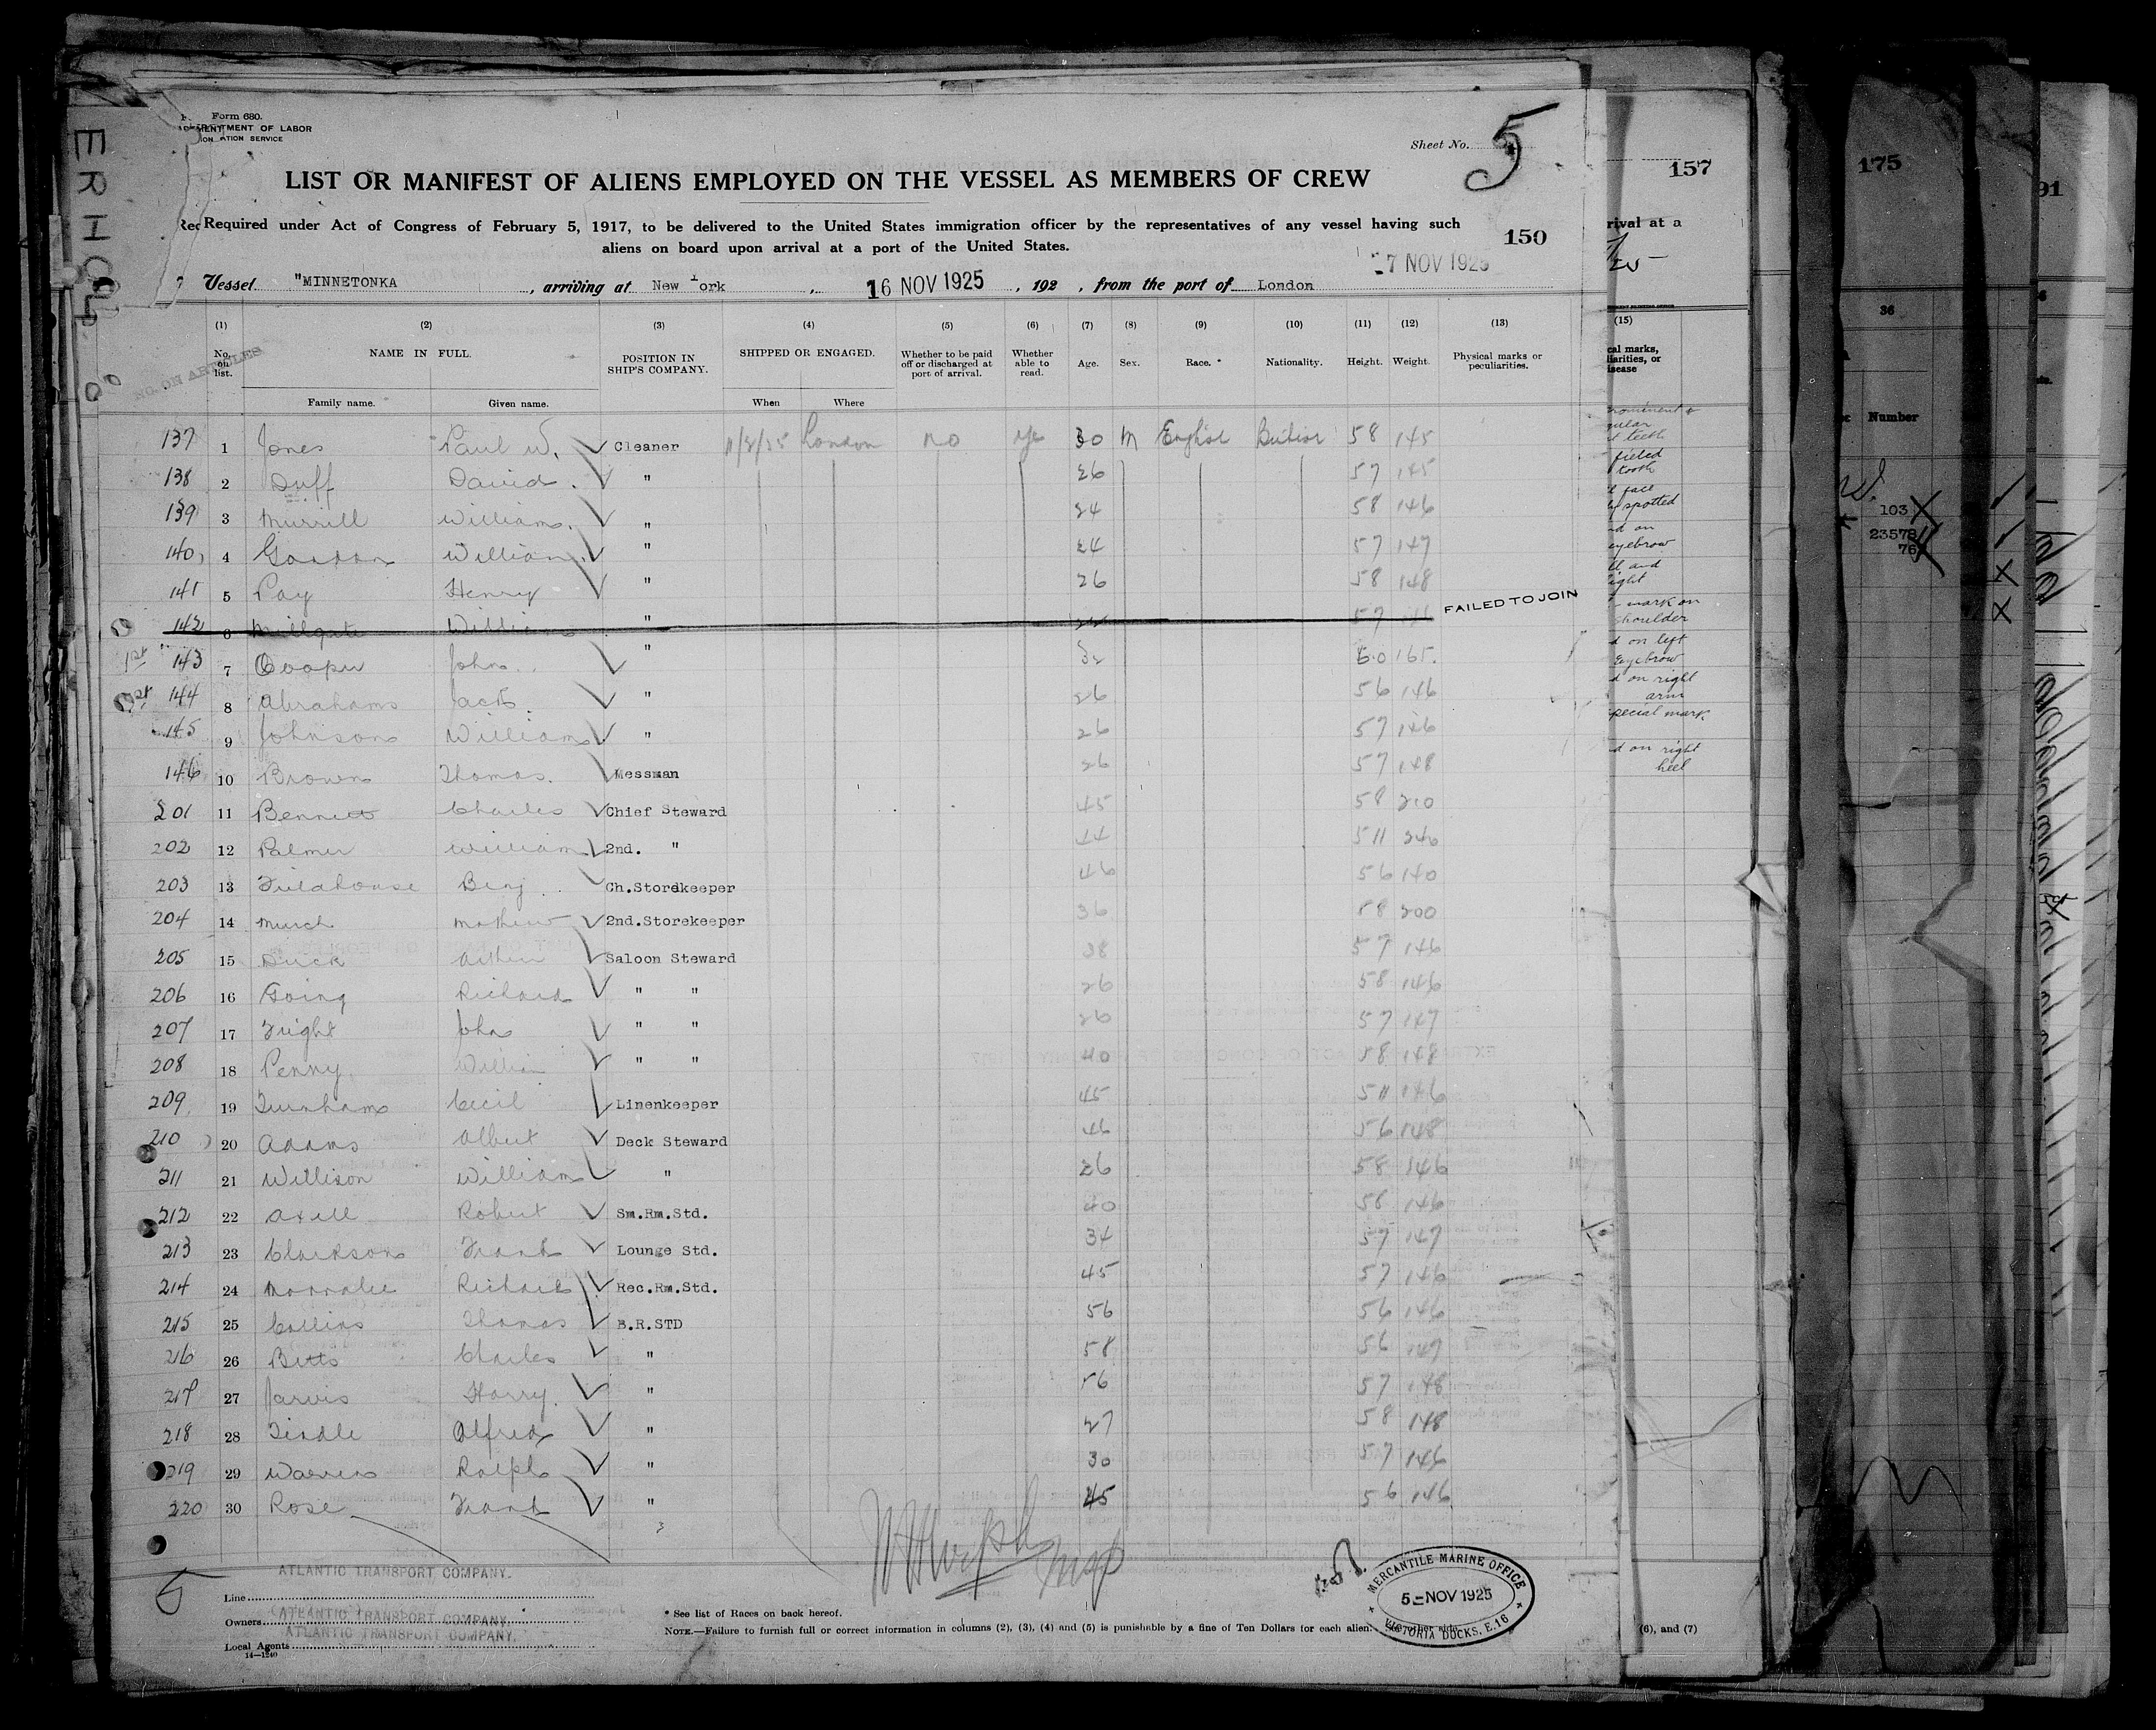 Form 680.
DEPARTMENT OF LABOR
ATION SERVICE
Sheet No. 5
LIST OR MANIFEST OF ALIENS EMPLOYED ON THE VESSEL AS MEMBERS OF CREW
Required under Act of Congress of February 5, 1917, to be delivered to the United States immigration officer by the representatives of any vessel having such
aliens on board upon arrival at a port of the United States.
150
7 NOV 1925
Vessel "MINNETONKA , arriving at New York , 16 NOV 1925 , 192 , from the port of London
(1) (2) (3) (4) (5) (6) (7) (8) (9) (10) (11) (12) (13)
No. on list. NAME IN FULL. POSITION IN SHIP'S COMPANY. SHIPPED OR ENGAGED. Whether to be paid off or discharged at port of arrival. Whether able to read. Age. Sex. Race. * Nationality. Height. Weight. Physical marks or peculiarities.
NO. ON ARTICLES
Family name. Given name. When Where
137 1 Jones Paul W. Cleaner London no yes 30 M English British 58 145
138 2 Duff David " 26 57 145
139 3 Murrill William " 24 58 146
140 4 Gordon William " 24 57 147
141 5 Pay Henry " 26 58 148
142 6 Millgate William " 57 FAILED TO JOIN
1st 143 7 Cooper John " 32 60 165
1st 144 8 Abrahams Jack " 26 56 146
145 9 Johnson William " 26 57 146
146 10 Brown Thomas Messman 26 57 148
201 11 Bennett Charles Chief Steward 45 58 210
202 12 Palmer William 2nd. " 44 511 240
203 13 Fieldhouse Benj Ch.Storekeeper 46 56 140
204 14 Murch Mathew 2nd.Storekeeper 36 58 200
205 15 Duck Arthur Saloon Steward 38 57 146
206 16 Going Richard " " 26 58 146
207 17 Fright John " " 26 57 147
208 18 Penny William " " 40 58 148
209 19 Turnham Cecil Linenkeeper 45 511 146
210 20 Adams Albert Deck Steward 46 56 148
211 21 Willison William " 26 58 146
212 22 Axell Robert Sm.Rm.Std. 40 58 146
213 23 Clarkson Frank Lounge Std. 34 57 147
214 24 Richard Rec.Rm.Std. 45 57 146
215 25 Collins Thomas B.R.STD 56 56 146
216 26 Betts Charles " 58 56 147
217 27 Jarvis Harry " 56 57 148
218 28 Tindle Alfred " 27 58 148
219 29 Warren Ralph " 30 57 146
220 30 Rose Frank " 45 56 146
5
Line ATLANTIC TRANSPORT COMPANY.
Owners ATLANTIC TRANSPORT COMPANY
Local Agents ATLANTIC TRANSPORT COMPANY.
14—1240
* See list of Races on back hereof.
NOTE.—Failure to furnish full or correct information in columns (2), (3), (4) and (5) is punishable by a fine of Ten Dollars for each alien. See other side.
MERCANTILE MARINE OFFICE
5 - NOV 1925
VICTORIA DOCKS, E.16
157
rival at a
(15)
cal marks,
liarities, or
isease
teeth
tooth
face
spotted
eyebrow
mark on
shoulder
on left
Eyebrow
on right
arm
special mark
on right
heel
(6), and (7)
175
36
Number
103
23578
76
91